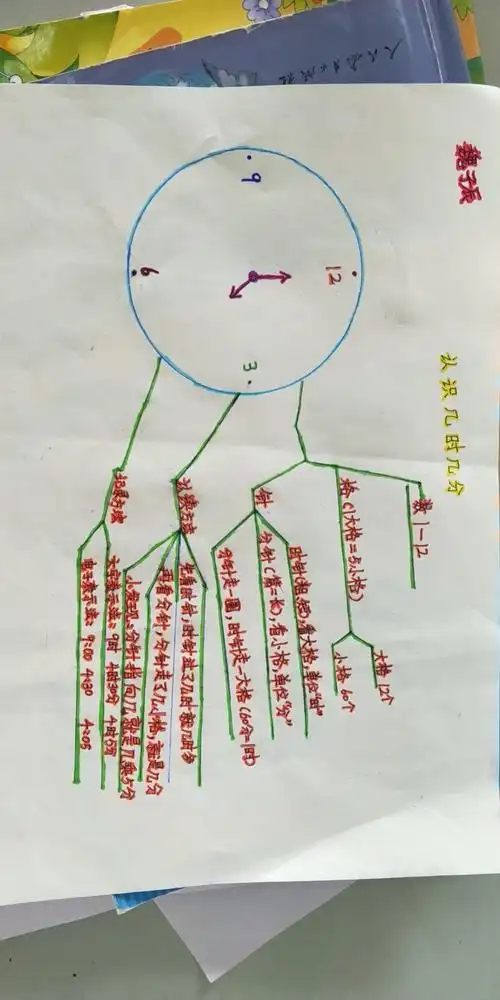 魏子辰
认识几时几分
12
3
6
9
数 1—12
格(1大格=5小格)
大格 12个
小格 60个
针
时针(粗短),看大格 单位"时"
分针(细长),看小格,单位"分"
分针走一圈,时针走一大格(60分=1时)
认读方法
先看时针,时针过了几时就几时多
再看分针,分针走了几小格,就是几分
小发现:分针指向几就是几乘5分
记录方法
文字表示法: 9时 4时30分 4时5分
电子表示法: 9:00 4:30 4:05